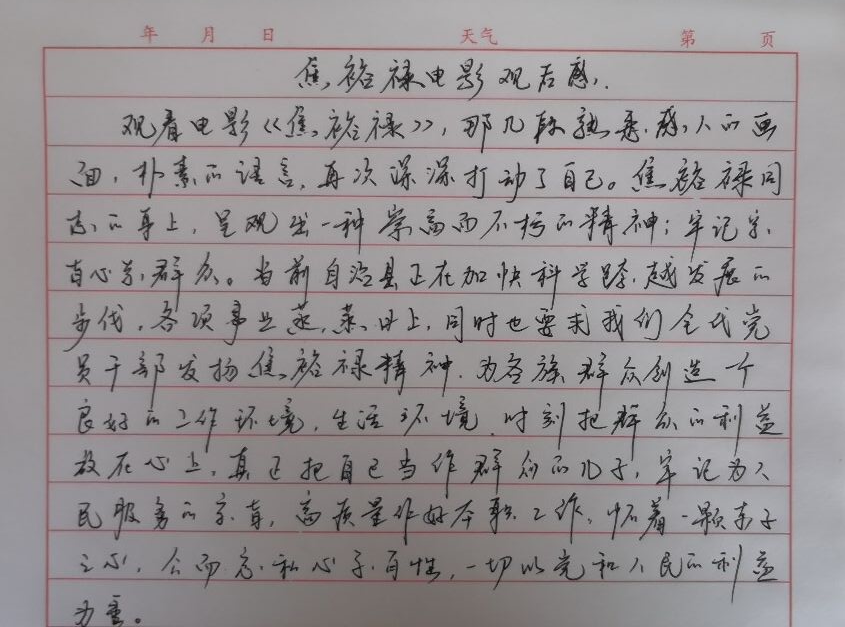 年 月 日 天气 第 页
焦裕禄电影观后感
观看电影《焦裕禄》，那几段熟悉.感人的画
面，朴素的语言，再次深深打动了自己。焦裕禄同
志的身上，呈现出一种崇高而不朽的精神；牢记宗
旨心系群众。当前自治县正在加快科学跨越发展的
步伐，各项事业蒸蒸日上，同时也要求我们全代党
员干部发扬焦裕禄精神.为各族群众创造一个
良好的工作环境，生活环境.时刻把群众的利益
放在心上，真正把自己当作群众的儿子，牢记为人
民服务的宗旨，高质量作好本职工作，怀着一颗赤子
之心，公而忘私心子百性，一切以党和人民的利益
为重。